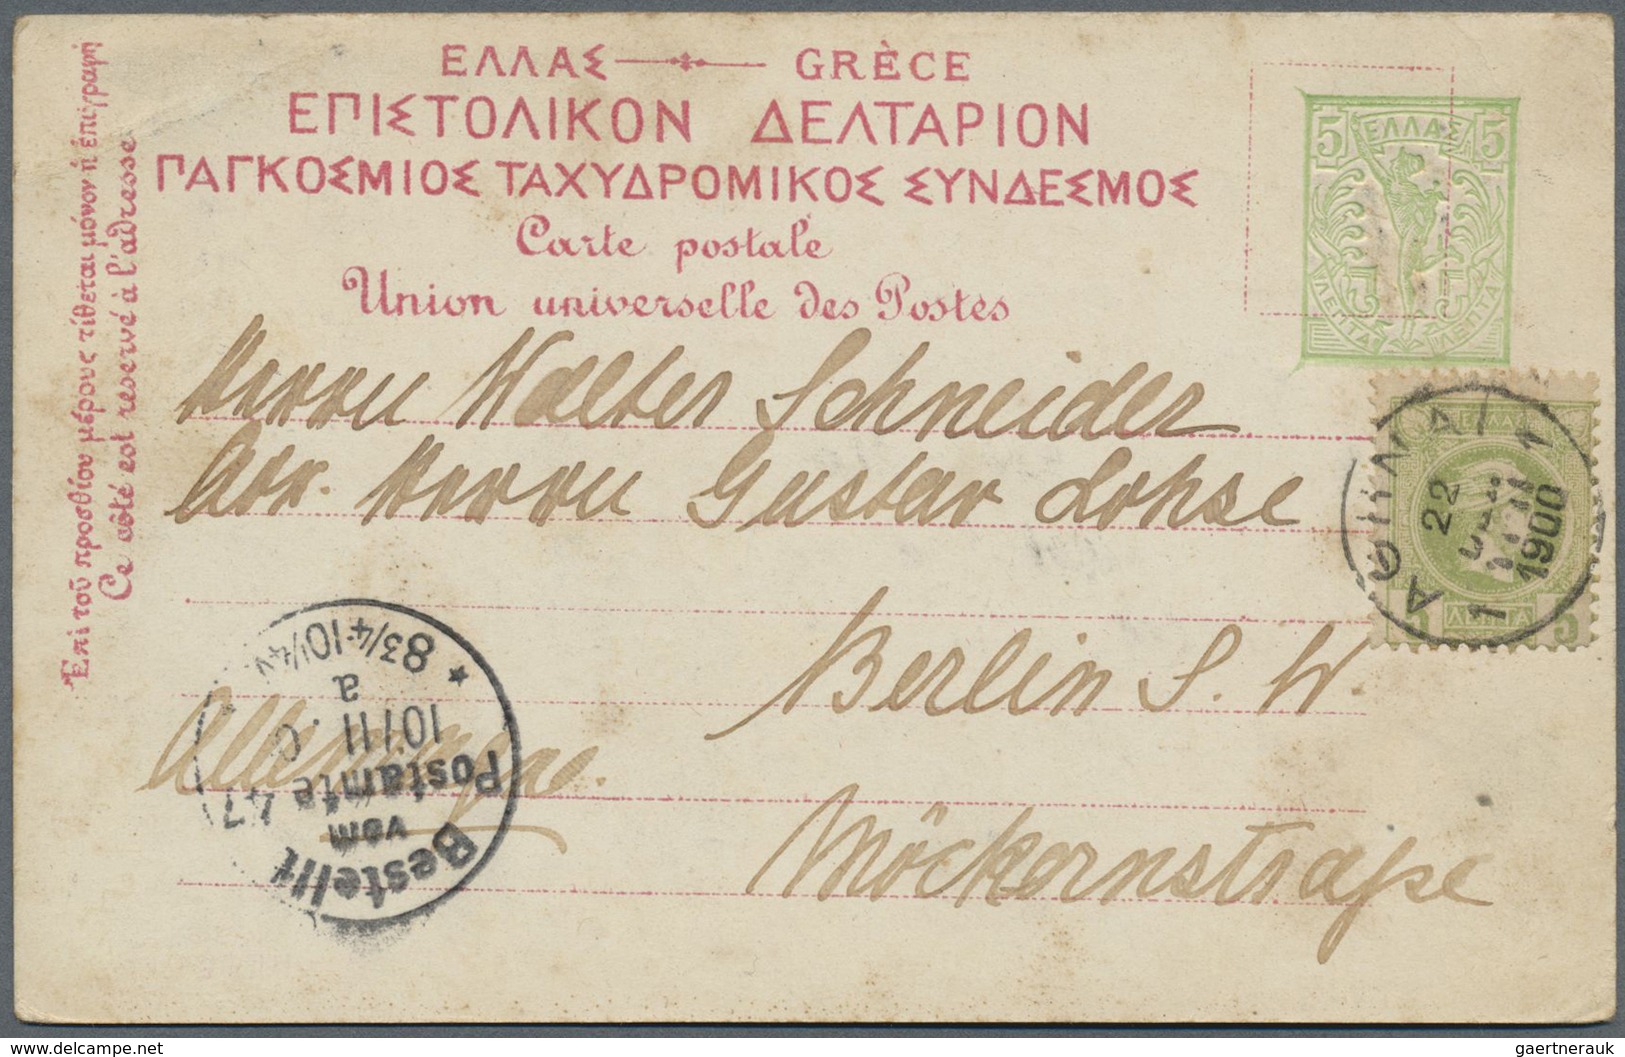 ΕΛΛΑΣ GRÈCE
ΕΠΙΣΤΟΛΙΚΟΝ ΔΕΛΤΑΡΙΟΝ
ΠΑΓΚΟΣΜΙΟΣ ΤΑΧΥΔΡΟΜΙΚΟΣ ΣΥΝΔΕΣΜΟΣ
Carte postale
Union universelle des Postes
Ἐπὶ τοῦ προσθίου μέρους τίθεται μόνον ἡ ἐπιγραφή
Ce côté est reservé à l'adresse
5 ΕΛΛΑΣ 5
5 ΛΕΠΤΑ 5 ΛΕΠΤΑ
Herrn Walter Schneider
Adr. Herrn Gustav Lohse
Berlin S. W.
Allemagne.
Möckernstraße
ΑΘΗΝΑΙ 1
22
1900
1
ΛΕΠΤΑ
5
Bestellt
vom
Postamte 47
10/11 0
a
* 83/4-101/4V
delcampe.net
gaertnerauk